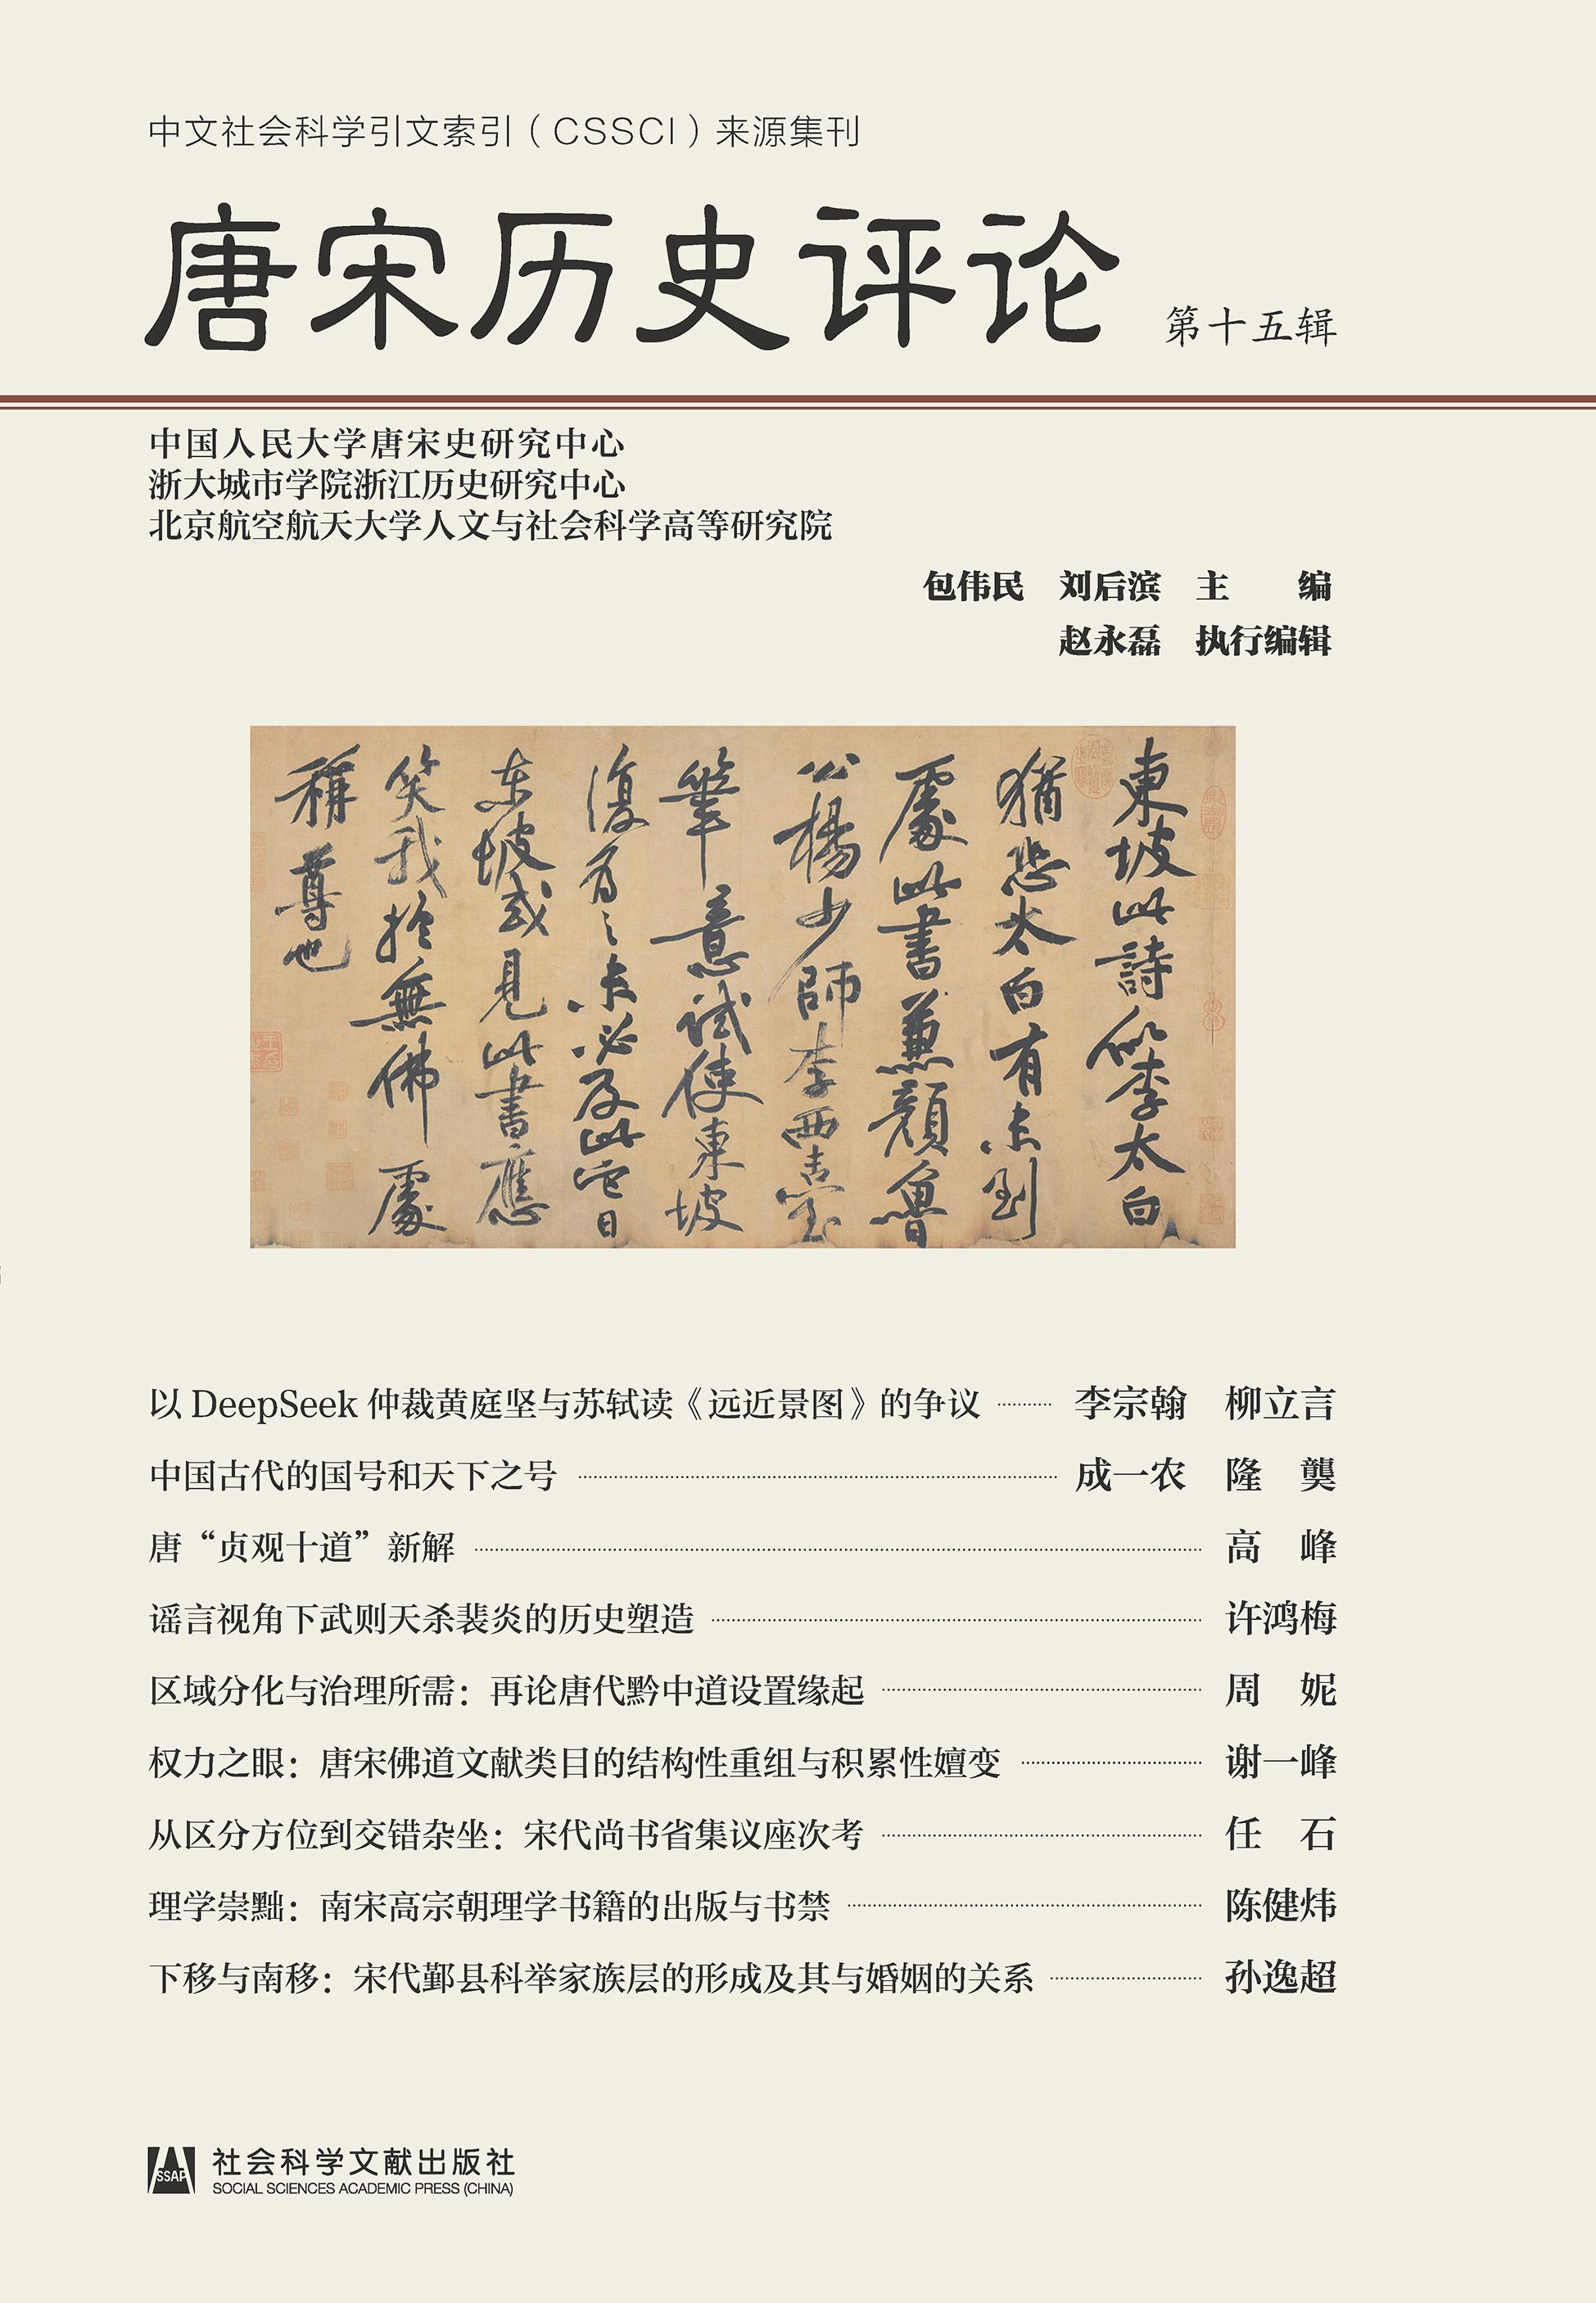 中文社会科学引文索引（CSSCI）来源集刊
唐宋历史评论 第十五辑
中国人民大学唐宋史研究中心
浙大城市学院浙江历史研究中心
北京航空航天大学人文与社会科学高等研究院
包伟民 刘后滨 主 编
赵永磊 执行编辑
東坡此詩似李太白
猶恐太白有未到
處此書兼顏魯
公楊少師李西臺
筆意試使東坡
復爲之未必及此它日
东坡或見此書應
笑我於無佛處
稱尊也
以 DeepSeek 仲裁黄庭坚与苏轼读《远近景图》的争议 李宗翰 柳立言
中国古代的国号和天下之号 成一农 隆 龑
唐“贞观十道”新解 高 峰
谣言视角下武则天杀裴炎的历史塑造 许鸿梅
区域分化与治理所需：再论唐代黔中道设置缘起 周 妮
权力之眼：唐宋佛道文献类目的结构性重组与积累性嬗变 谢一峰
从区分方位到交错杂坐：宋代尚书省集议座次考 任 石
理学崇黜：南宋高宗朝理学书籍的出版与书禁 陈健炜
下移与南移：宋代鄞县科举家族层的形成及其与婚姻的关系 孙逸超
SSAP
社会科学文献出版社
SOCIAL SCIENCES ACADEMIC PRESS (CHINA)